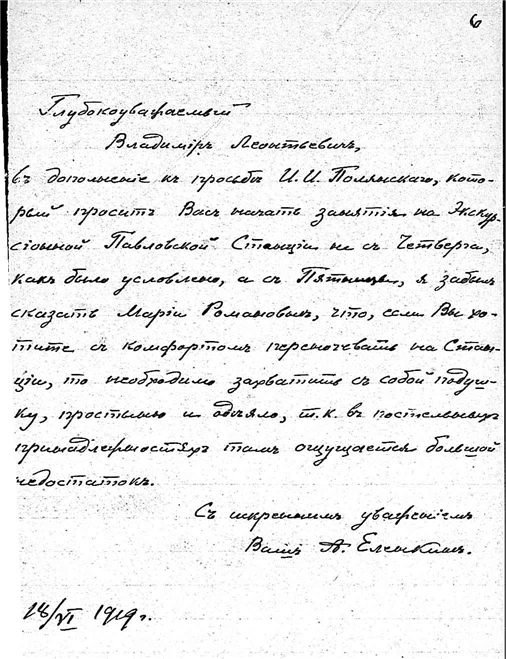 6
Глубокоуважаемый
Владимиръ Леонтьевичъ,
въ дополненіе къ просьбѣ И.И. Полянскаго, кото-
рый проситъ Васъ начать занятія на Экскур-
сіонной Павловской Станціи не съ Четверга,
какъ было условлено, а съ Пятницы, я забылъ
сказать Маріи Романовнѣ, что, если Вы хо-
тите съ комфортомъ переночевать на Стан-
ціи, то необходимо захватить съ собой подуш-
ку, простыню и одѣяло, т.к. въ постельныхъ
принадлежностяхъ тамъ ощущается большой
недостатокъ.
Съ искреннимъ уваженіемъ
Вашъ А. Еленкинъ.
18/VI 1919 г.